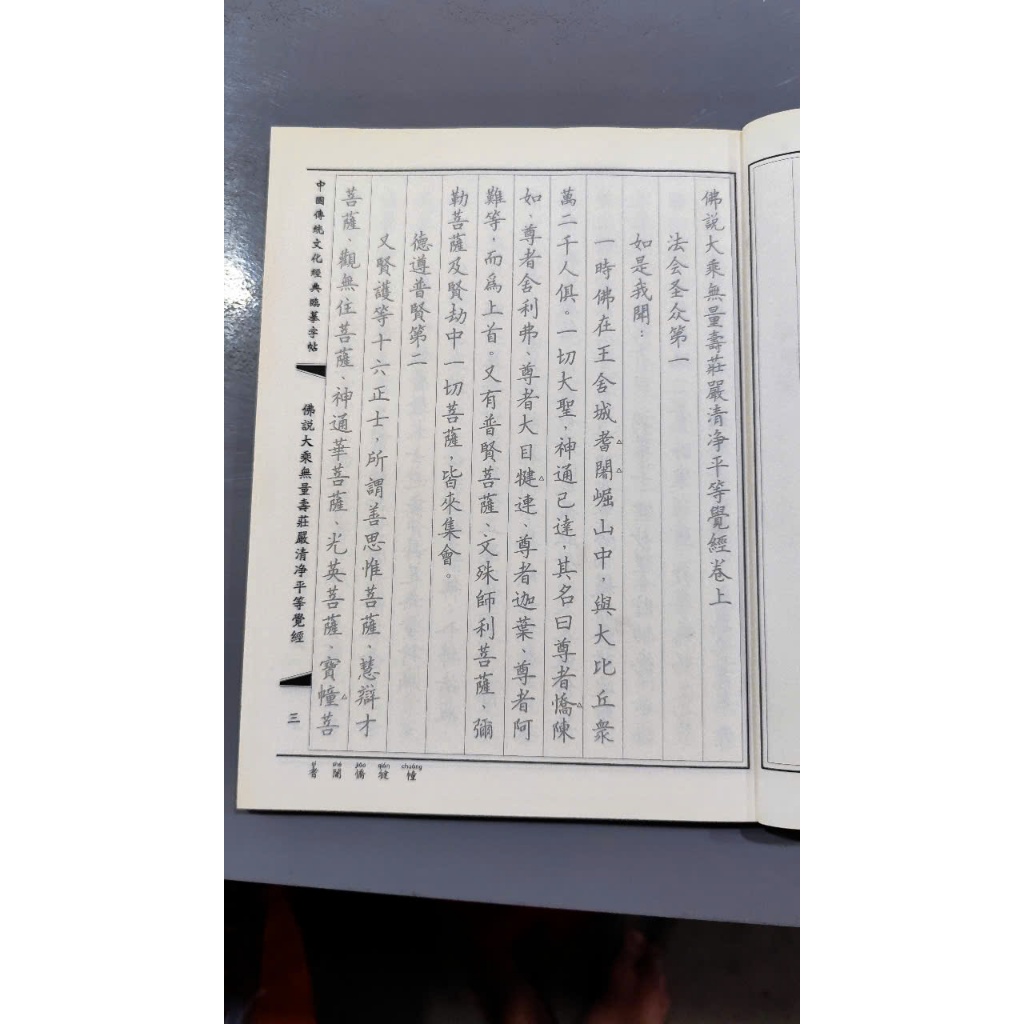 佛説大乘無量壽莊嚴清净平等覺經卷上
法会圣众第一
如是我聞：
一時佛在王舍城耆闍崛山中，與大比丘衆
萬二千人俱。一切大聖，神通已達，其名曰尊者憍陳
如、尊者舍利弗、尊者大目犍連、尊者迦葉、尊者阿
難等，而爲上首。又有普賢菩薩、文殊師利菩薩、彌
勒菩薩及賢劫中一切菩薩，皆來集會。
德遵普賢第二
又賢護等十六正士，所謂善思惟菩薩、慧辯才
菩薩、觀無住菩薩、神通華菩薩、光英菩薩、寶幢菩
中國傳統文化經典臨摹字帖
佛説大乘無量壽莊嚴清净平等覺經
三
耆 闍 憍 犍 幢